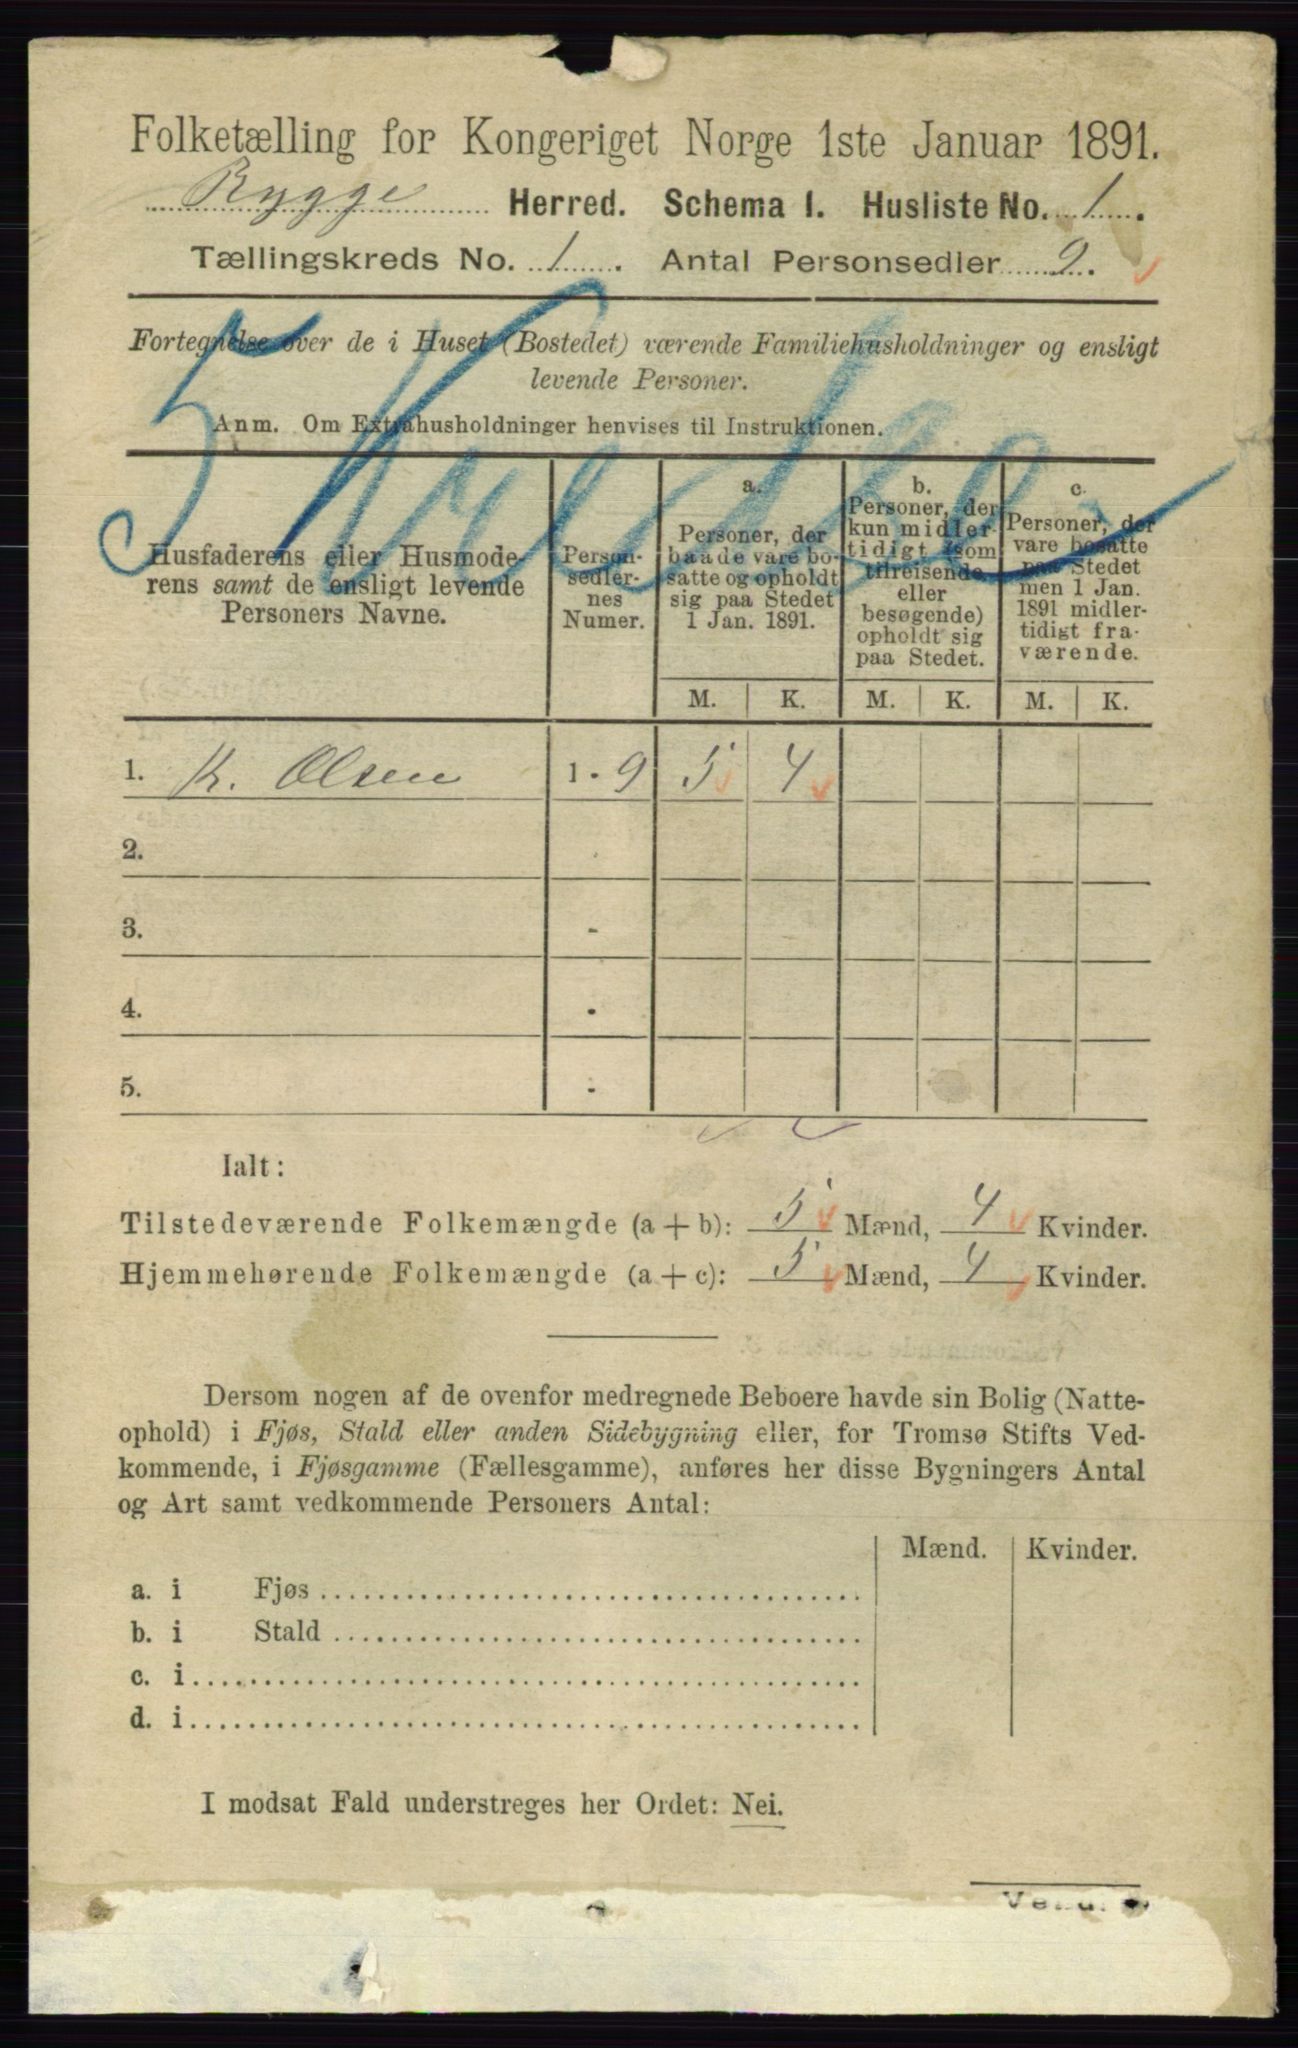 Folketælling for Kongeriget Norge 1ste Januar 1891.
Rygge Herred. Schema I. Husliste No. 1.
Tællingskreds No. 1. Antal Personsedler 9.
Fortegnelse over de i Huset (Bostedet) værende Familiehusholdninger og ensligt
levende Personer.
Anm. Om Extrahusholdninger henvises til Instruktionen.
5 Kredse
Husfaderens eller Husmode-
rens samt de ensligt levende
Personers Navne.
Person-
sedler-
nes
Numer.
a.
Personer, der
baade vare bo-
satte og opholdt
sig paa Stedet
1 Jan. 1891.
b.
Personer, der
kun midler-
tidigt (som
tilreisende
eller
besøgende)
opholdt sig
paa Stedet.
c.
Personer, der
vare bosatte
paa Stedet
men 1 Jan.
1891 midler-
tidigt fra-
værende.
M. K. M. K. M. K.
1. K. Olsen 1 - 9 5 4
2.
3. -
4. -
5. -
Ialt:
Tilstedeværende Folkemængde (a + b): 5 Mænd, 4 Kvinder.
Hjemmehørende Folkemængde (a + c): 5 Mænd, 4 Kvinder.
Dersom nogen af de ovenfor medregnede Beboere havde sin Bolig (Natte-
ophold) i Fjøs, Stald eller anden Sidebygning eller, for Tromsø Stifts Ved-
kommende, i Fjøsgamme (Fællesgamme), anføres her disse Bygningers Antal
og Art samt vedkommende Personers Antal:
Mænd. Kvinder.
a. i Fjøs
b. i Stald
c. i
d. i
I modsat Fald understreges her Ordet: Nei.